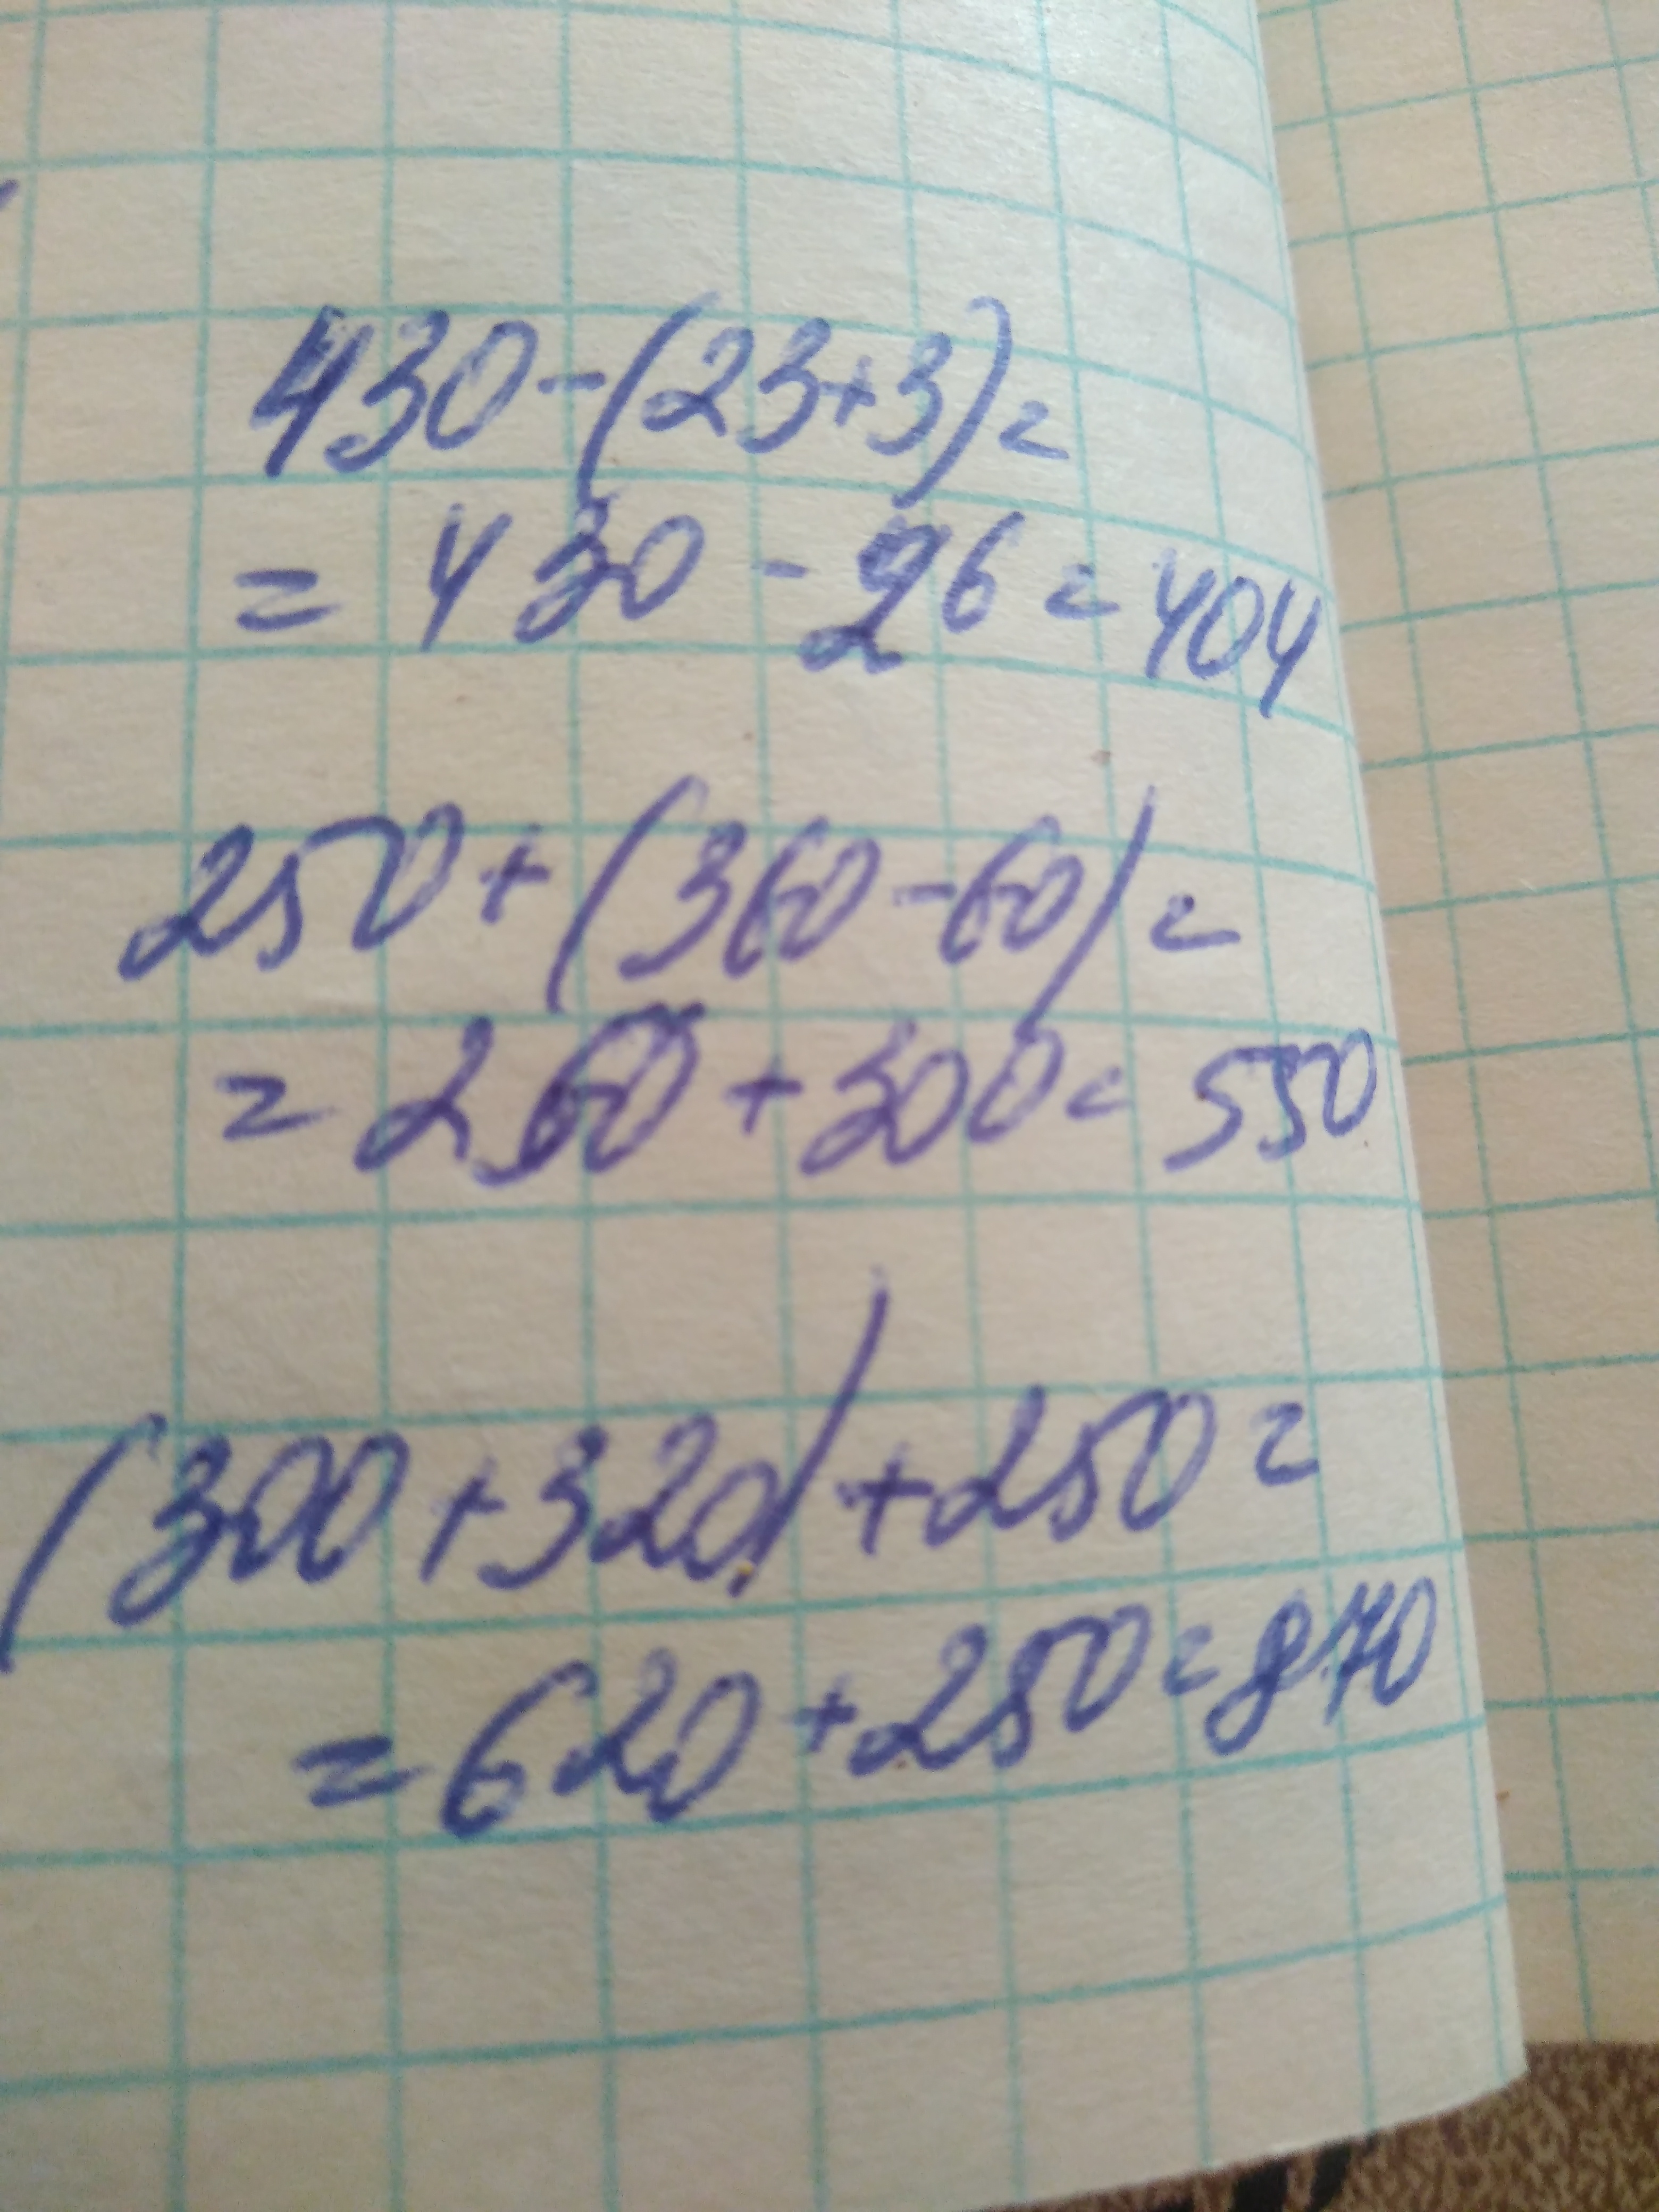 430-(23+3)=
= 430 - 26 = 404
250+(360-60)=
= 250 + 300 = 550
(300+320)+250=
= 620 + 250 = 870